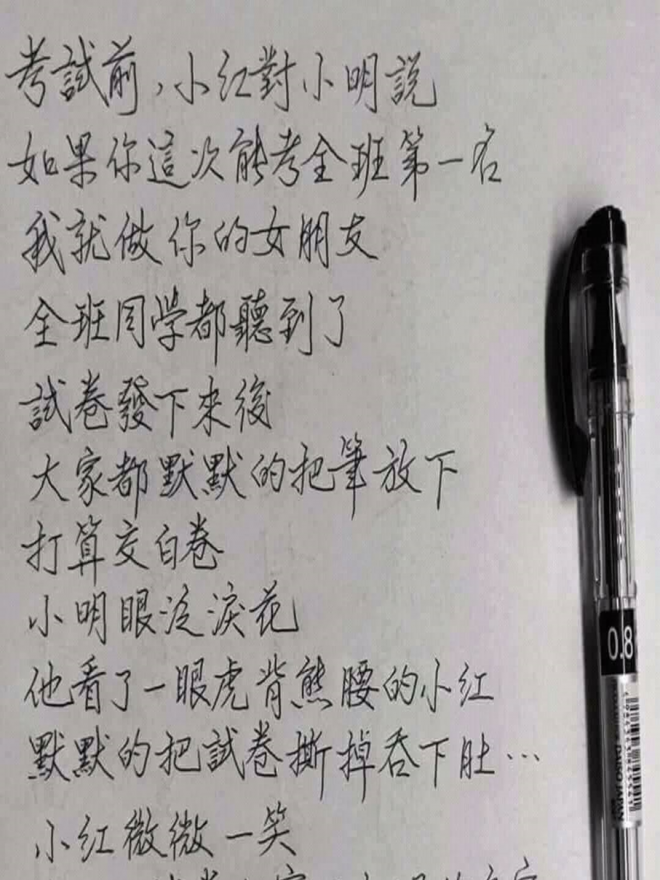 考試前，小红對小明說
如果你這次能考全班第一名
我就做你的女朋友
全班同学都聽到了
試卷發下來後
大家都默默的把筆放下
打算交白卷
小明眼泛淚花
他看了一眼虎背熊腰的小红
默默的把試卷撕掉吞下肚…
小红微微一笑
0.8
DAISO JAPAN